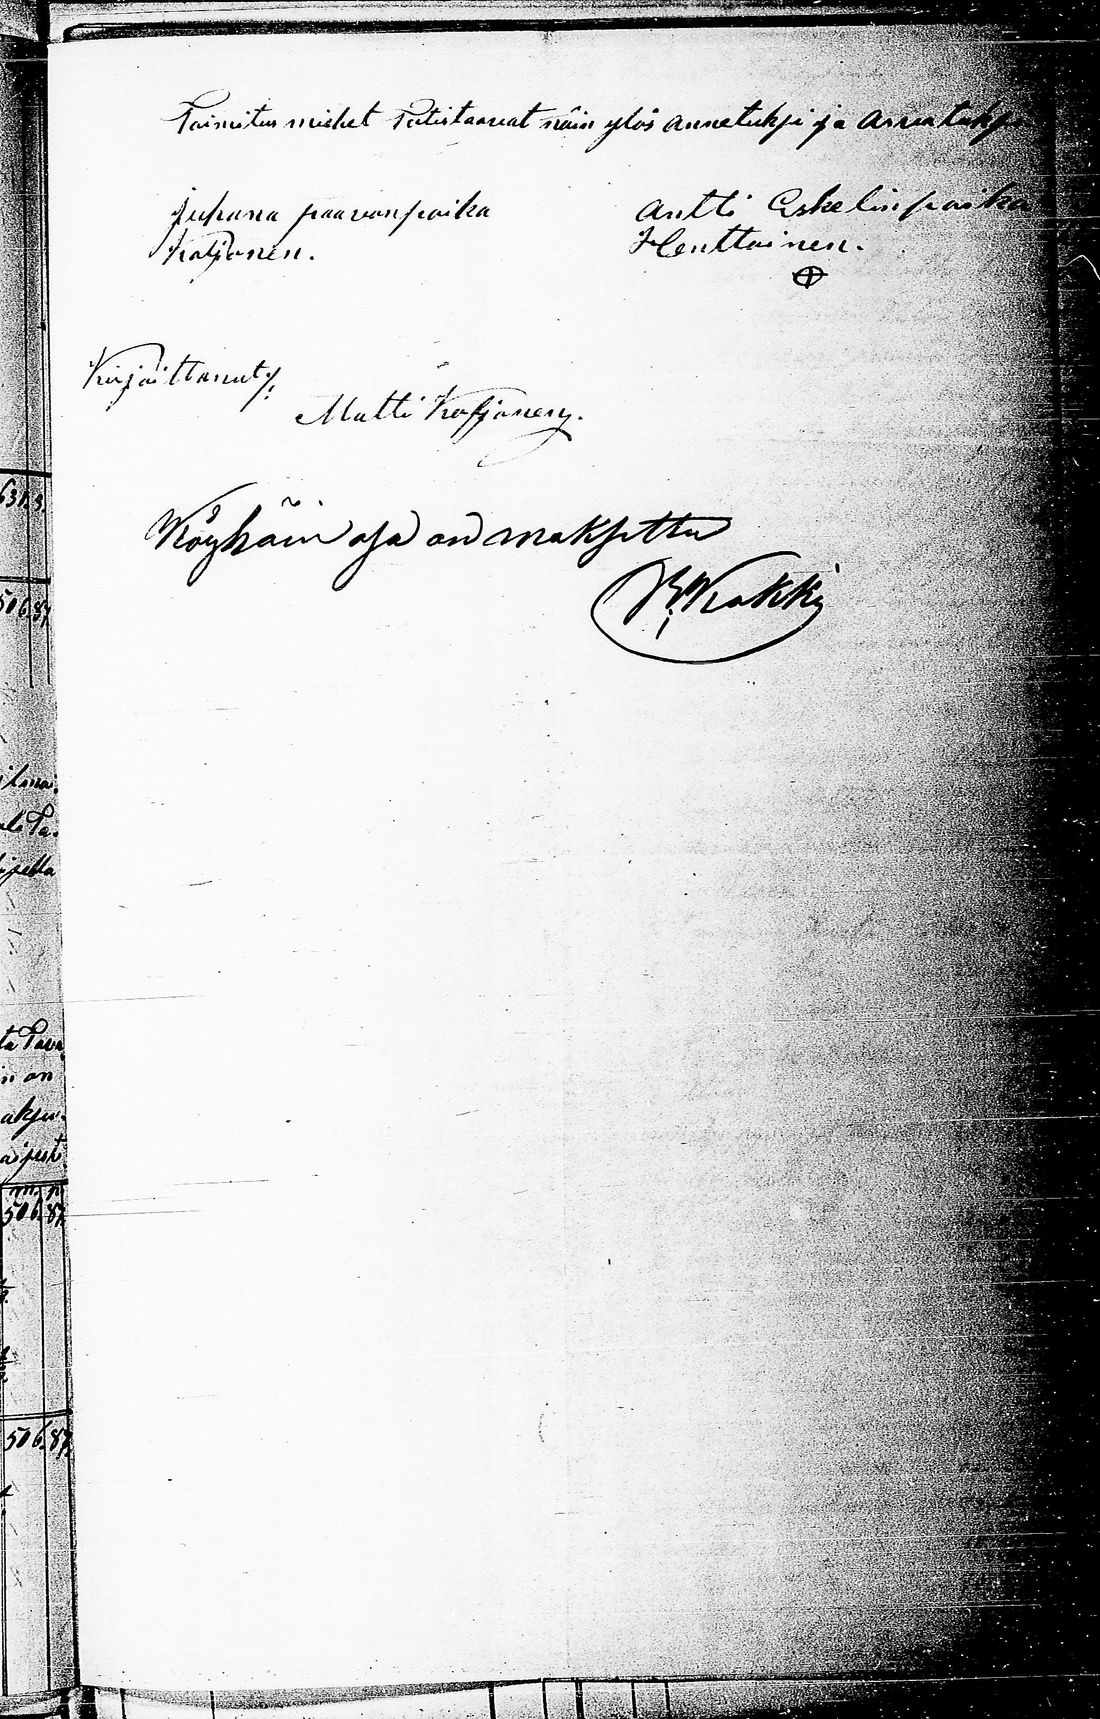 Toimitus miehet Totistaavat näin ylös annetuksi ja arvatuksi
Juhana paavonpoika
Korjonen.
Antti Eskelinpoika
Henttoinen.
Kirjoittanut;
Matti Korjonen.
Köyhäin osa on maksettu
631.3.
506.87
ta Tava
in on
506.87
506.87